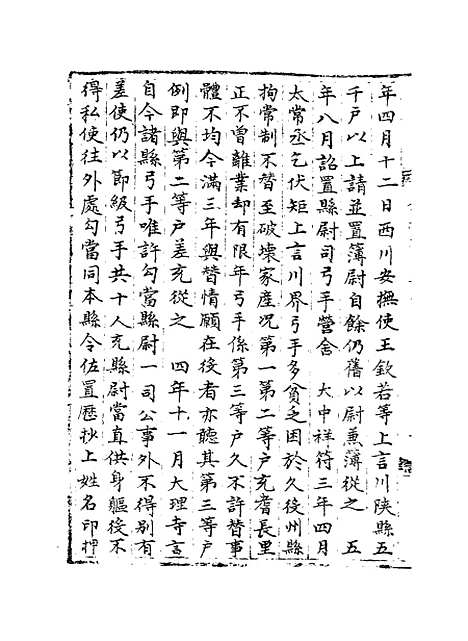 年四月十二日西川安撫使王欽若等上言川陝縣五
千戶以上請並置簿尉自餘仍舊以尉兼簿從之　五
年八月詔置縣尉司弓手營舍　大中祥符三年四月
太常丞乞伏矩上言川界弓手多貧乏困於久役州縣
拘常制不替至破壊家産况第一第二等戶充耆長里
正不曾離業却有限年弓手係第三等戶久不許替事
體不均今滿三年與替情願在役者亦聽其第三等戶
例即與第二等戶差充從之　四年十一月大理寺言
自今諸縣弓手唯許勾當縣尉一司公事外不得别有
差使仍以節級弓手共十人充縣尉當直供身軀役不
得私使往外處勾當同本縣令佐置歷抄上姓名印押